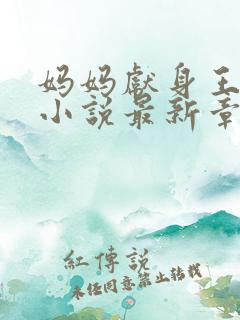 妈妈獻身王
小說最新章
紅傳說
未经同意禁止转载